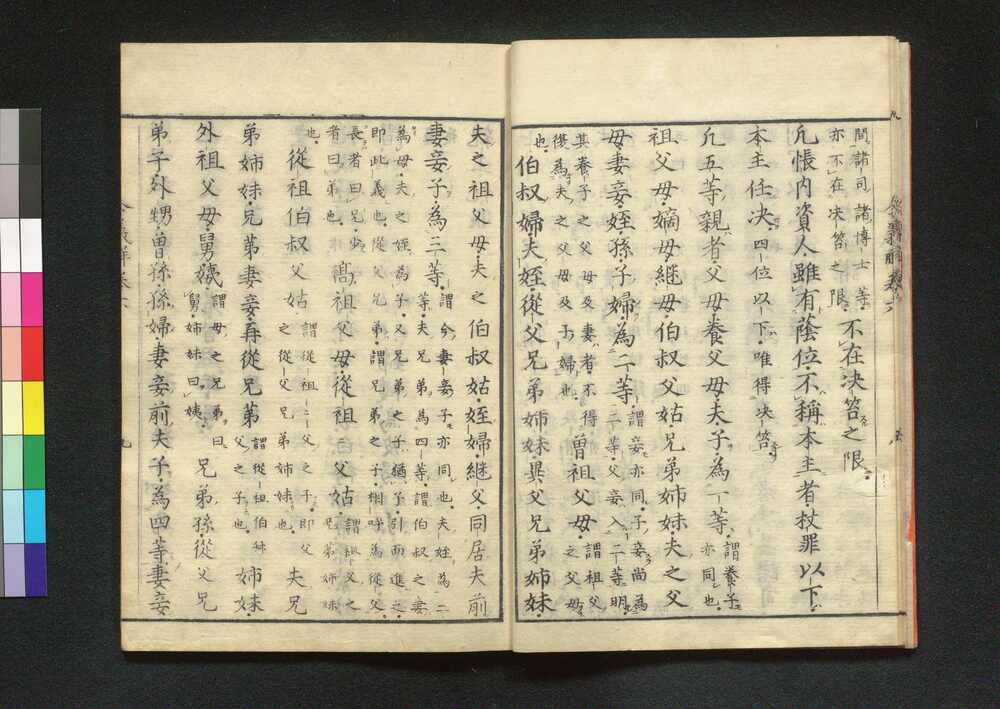 問諸司諸博士等
亦不在决笞之限
不在决笞之限
凢帳内資人雖有蔭位不稱本主者杖罪以下
本主任决四位以下唯得决笞
凢五等親者父母養父母夫子為一等
謂養子
亦同也
祖父母嫡母継母伯叔父姑兄弟姉妹夫之父
母妻妾姪孫子婦為二等
謂妾亦同子妾尚為
二等父妾入二等明
其養子之父母及妻者不得
復為夫之父母及子婦也
曽祖父母
謂祖父
之父母
也
伯叔婦夫姪從父兄弟姉妹異父兄弟姉妹
夫之祖父母夫之伯叔姑姪婦継父同居夫前
妻妾子為三等
謂今妻妾子亦同也夫姪為二
等夫兄弟為四等謂伯叔之妻
為母夫之姪為子又兄弟之子猶子引而進之
即此義也從父兄弟謂兄弟之子相呼為從父
長者曰兄少
者曰弟也
髙祖父母從祖白父姑
謂祖父之
兄弟姉妹
也
從祖伯叔父姑
謂從祖々父之子即父
之從父兄弟姉妹也
夫兄
弟姉妹兄弟妻妾再從兄弟
謂從祖伯叔
父之子也
姉妹
外祖父母舅姨
謂母之兄弟曰
舅姉妹曰姨
兄弟孫從父兄
弟子外甥曽孫孫婦妻妾前夫子為四等妻妾